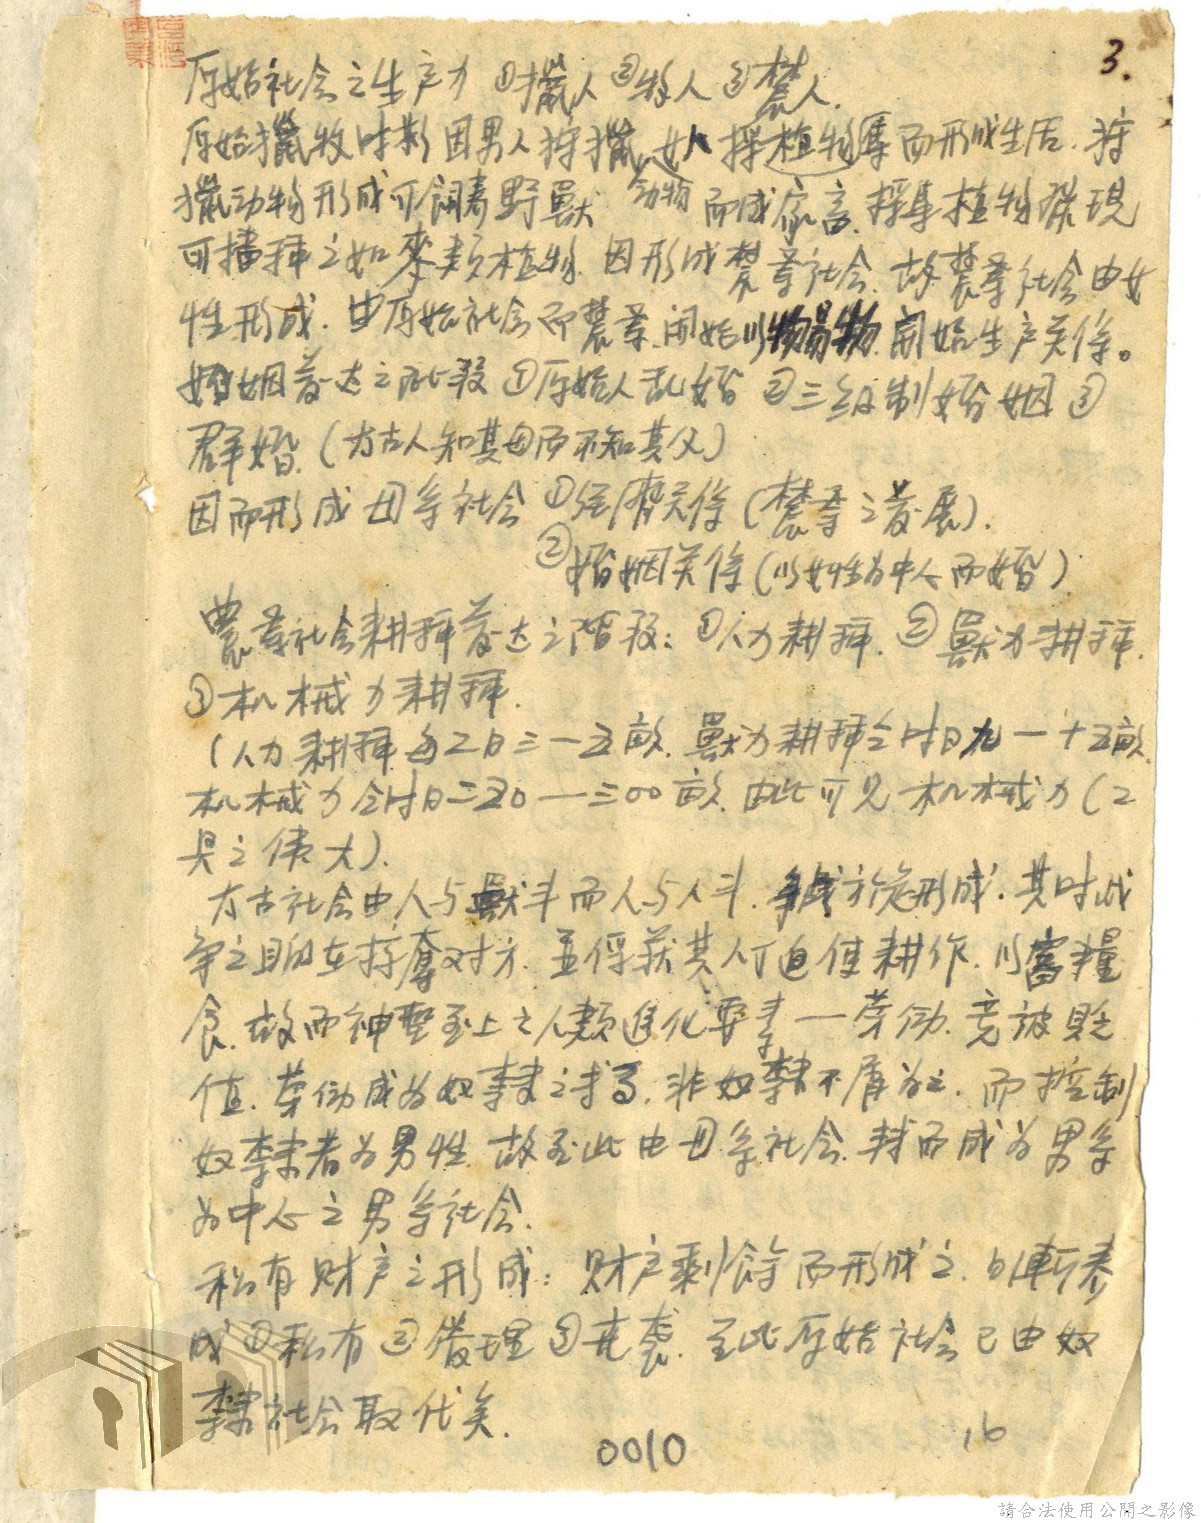 3.
原始社会之生产力 ①猎人 ②牧人 ③農人.
原始獵牧时影因男人狩獵,女人採植物集而形成生活.狩
獵动物形成可飼養野獸动物而成家畜.採集植物發現
可播种之如麥類植物.因形成農業社会.故農業社会由女
性形成.由原始社会而農業.開始以物易物.開始生产关係。
婚姻發达之階段①原始人乱婚 ②三组制婚姻 ③
群婚.(太古人知其母而不知其父)
因而形成母系社会 ①经济关係(農業之發展).
②婚姻关係(以女性为中心而婚)
農業社会耕种發达之階段:①人力耕种.②獸力耕种.
③机械力耕种.
(人力耕种每工日三一五亩.獸力耕种全时日九一十五亩.
机械力全时日二五0一三00亩.由此可见机械力(工
具之偉大).
太古社会由人与獸斗而人与人斗.争战於是形成.其时战
争之目的在掠奪对方.並俘获其人丁迫使耕作.以富糧
食.故而神聖至上之人類進化要素一劳働.竟被貶
值.劳働成为奴隸之事.非奴隸不屑为之.而控制
奴隸者为男性.故至此由母系社会.转而成为男系
为中心之男系社会.
私有财产之形成:财产剩餘而形成之.日漸养
成①私有②管理③承袭.至此原始社会已由奴
隸社会取代矣.
0010
16
請合法使用公開之影像